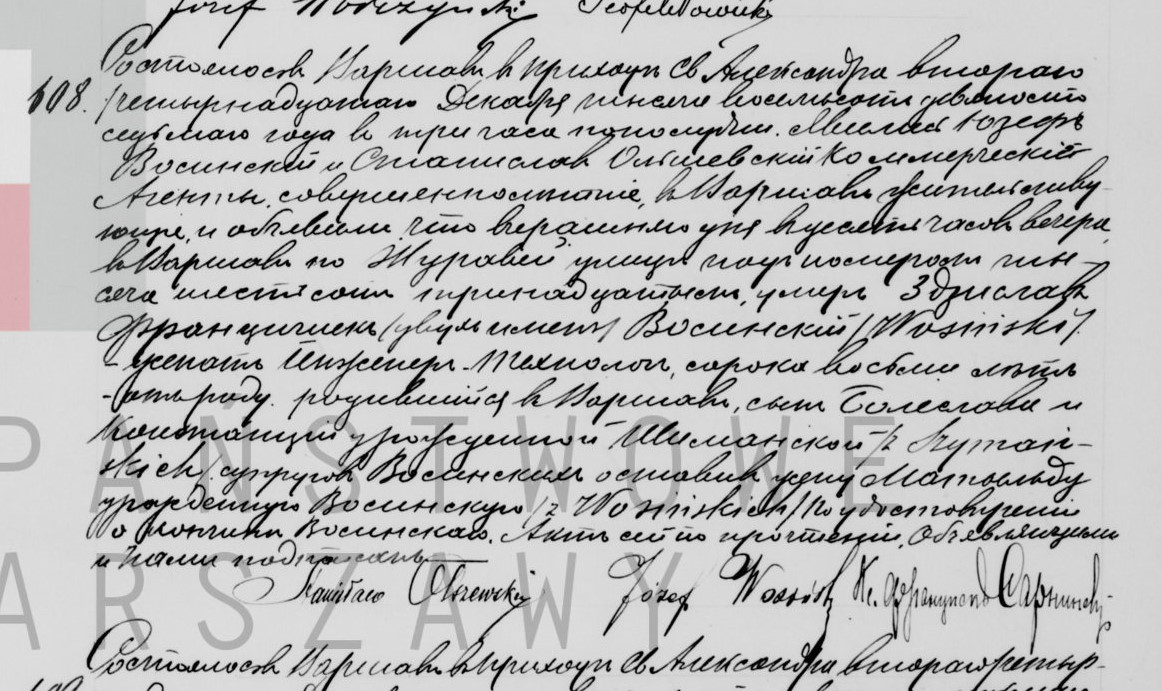 Józef Teofil Nowicki
608. Состоялось въ Варшавѣ въ приходѣ Св. Александра втораго
/четырнадцатаго Декабря тысяча восемьсотъ девяносто
седьмаго года въ три часа пополудни. Явились Юзефъ
Восинскій и Станиславъ Ольшевскій Коммерческіе
Агенты, совершеннолѣтніе, въ Варшавѣ жительству-
ющіе, и объявили, что вчерашняго дня въ десять часовъ вечера,
въ Варшавѣ по Журавей улицѣ подъ номеромъ ты-
сяча шестьсотъ тринадцатымъ, умеръ Здзиславъ
Францишекъ /двухъ именъ/ Восинскій /Wosiński/.
женатъ Инженеръ-технологъ, сорока восьми лѣтъ
отъ роду, родившійся въ Варшавѣ, сынъ Болеслава и
Констанціи урожденной Шиманской /z Szymań-
skich/ супруговъ Восинскихъ оставивъ жену Матильду
урожденную Восинскую /z Wosińskich/ По удостовѣреніи
о кончинѣ Восинскаго, Актъ сей по прочтеніи, Объявляющими
и Нами подписанъ
Stanisław Olszewski Józef Wosiński Кс. Францискъ
Состоялось въ Варшавѣ въ приходѣ Св. Александра втораго /четыр-
PAŃSTWOWE
ARSZAWY